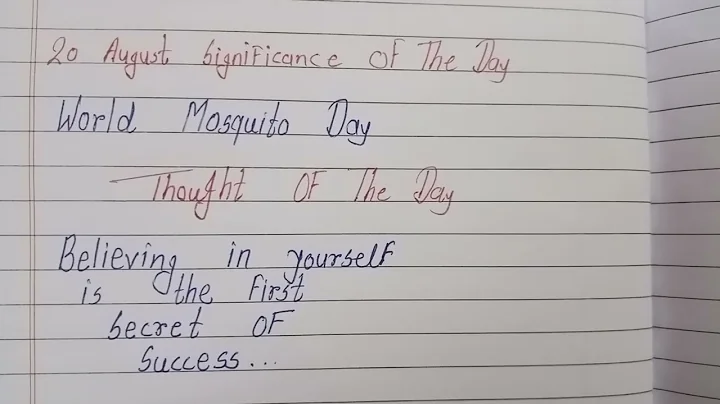 20 August Significance Of The Day
World Mosquito Day
Thought Of The Day
Believing in yourself
is the first
Secret OF
Success...